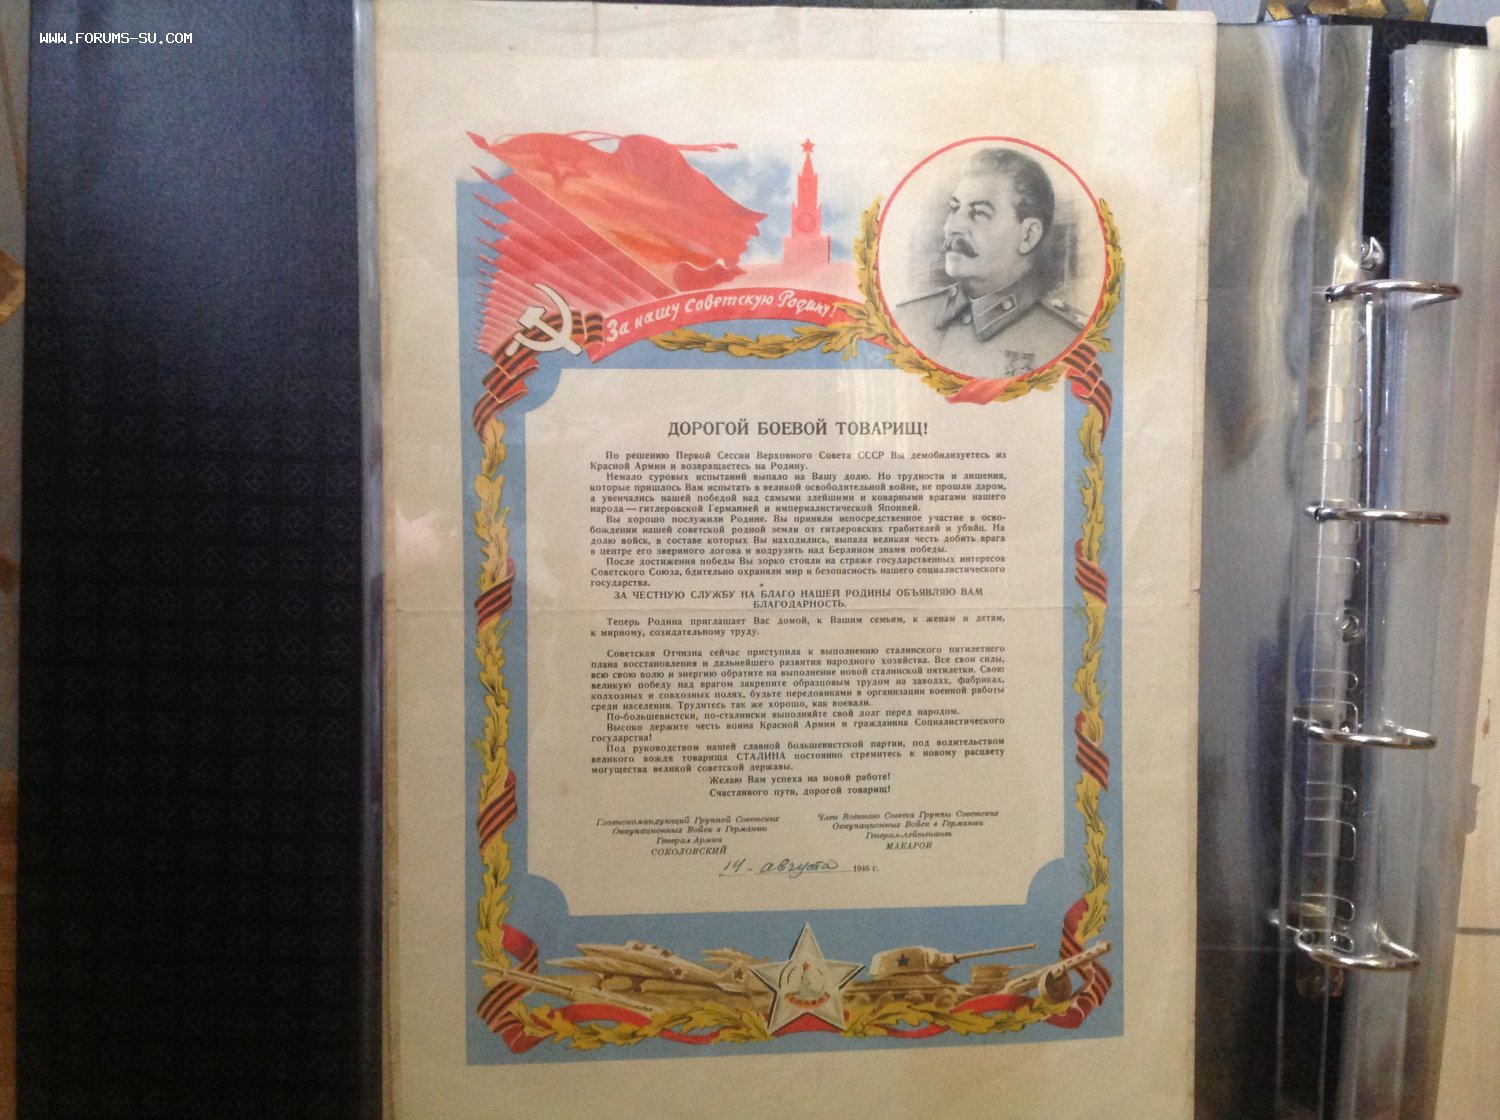 WWW.FORUMS-SU.COM
За нашу Советскую Родину!
ДОРОГОЙ БОЕВОЙ ТОВАРИЩ!
По решению Первой Сессии Верховного Совета СССР Вы демобилизуетесь из
Красной Армии и возвращаетесь на Родину.
Немало суровых испытаний выпало на Вашу долю. Но трудности и лишения,
которые пришлось Вам испытать в великой освободительной войне, не прошли даром,
а увенчались нашей победой над самыми злейшими и коварными врагами нашего
народа — гитлеровской Германией и империалистической Японией.
Вы хорошо послужили Родине. Вы приняли непосредственное участие в осво-
бождении нашей советской родной земли от гитлеровских грабителей и убийц. На
долю войск, в составе которых Вы находились, выпала великая честь добить врага
в центре его звериного логова и водрузить над Берлином знамя победы.
После достижения победы Вы зорко стояли на страже государственных интересов
Советского Союза, бдительно охраняли мир и безопасность нашего социалистического
государства.
ЗА ЧЕСТНУЮ СЛУЖБУ НА БЛАГО НАШЕЙ РОДИНЫ ОБЪЯВЛЯЮ ВАМ
БЛАГОДАРНОСТЬ.
Теперь Родина приглашает Вас домой, к Вашим семьям, к женам и детям,
к мирному, созидательному труду.
Советская Отчизна сейчас приступила к выполнению сталинского пятилетнего
плана восстановления и дальнейшего развития народного хозяйства. Все свои силы,
всю свою волю и энергию обратите на выполнение новой сталинской пятилетки. Свою
великую победу над врагом закрепите образцовым трудом на заводах, фабриках,
колхозных и совхозных полях, будьте передовиками в организации военной работы
среди населения. Трудитесь так же хорошо, как воевали.
По-большевистски, по-сталински выполняйте свой долг перед народом.
Высоко держите честь воина Красной Армии и гражданина Социалистического
государства!
Под руководством нашей славной большевистской партии, под водительством
великого вождя товарища СТАЛИНА постоянно стремитесь к новому расцвету
могущества великой советской державы.
Желаю Вам успеха на новой работе!
Счастливого пути, дорогой товарищ!
Главнокомандующий Группой Советских
Оккупационных Войск в Германии
Генерал Армии
СОКОЛОВСКИЙ
Член Военного Совета Группы Советских
Оккупационных Войск в Германии
Генерал-Лейтенант
МАКАРОВ
14. августа 1946 г.